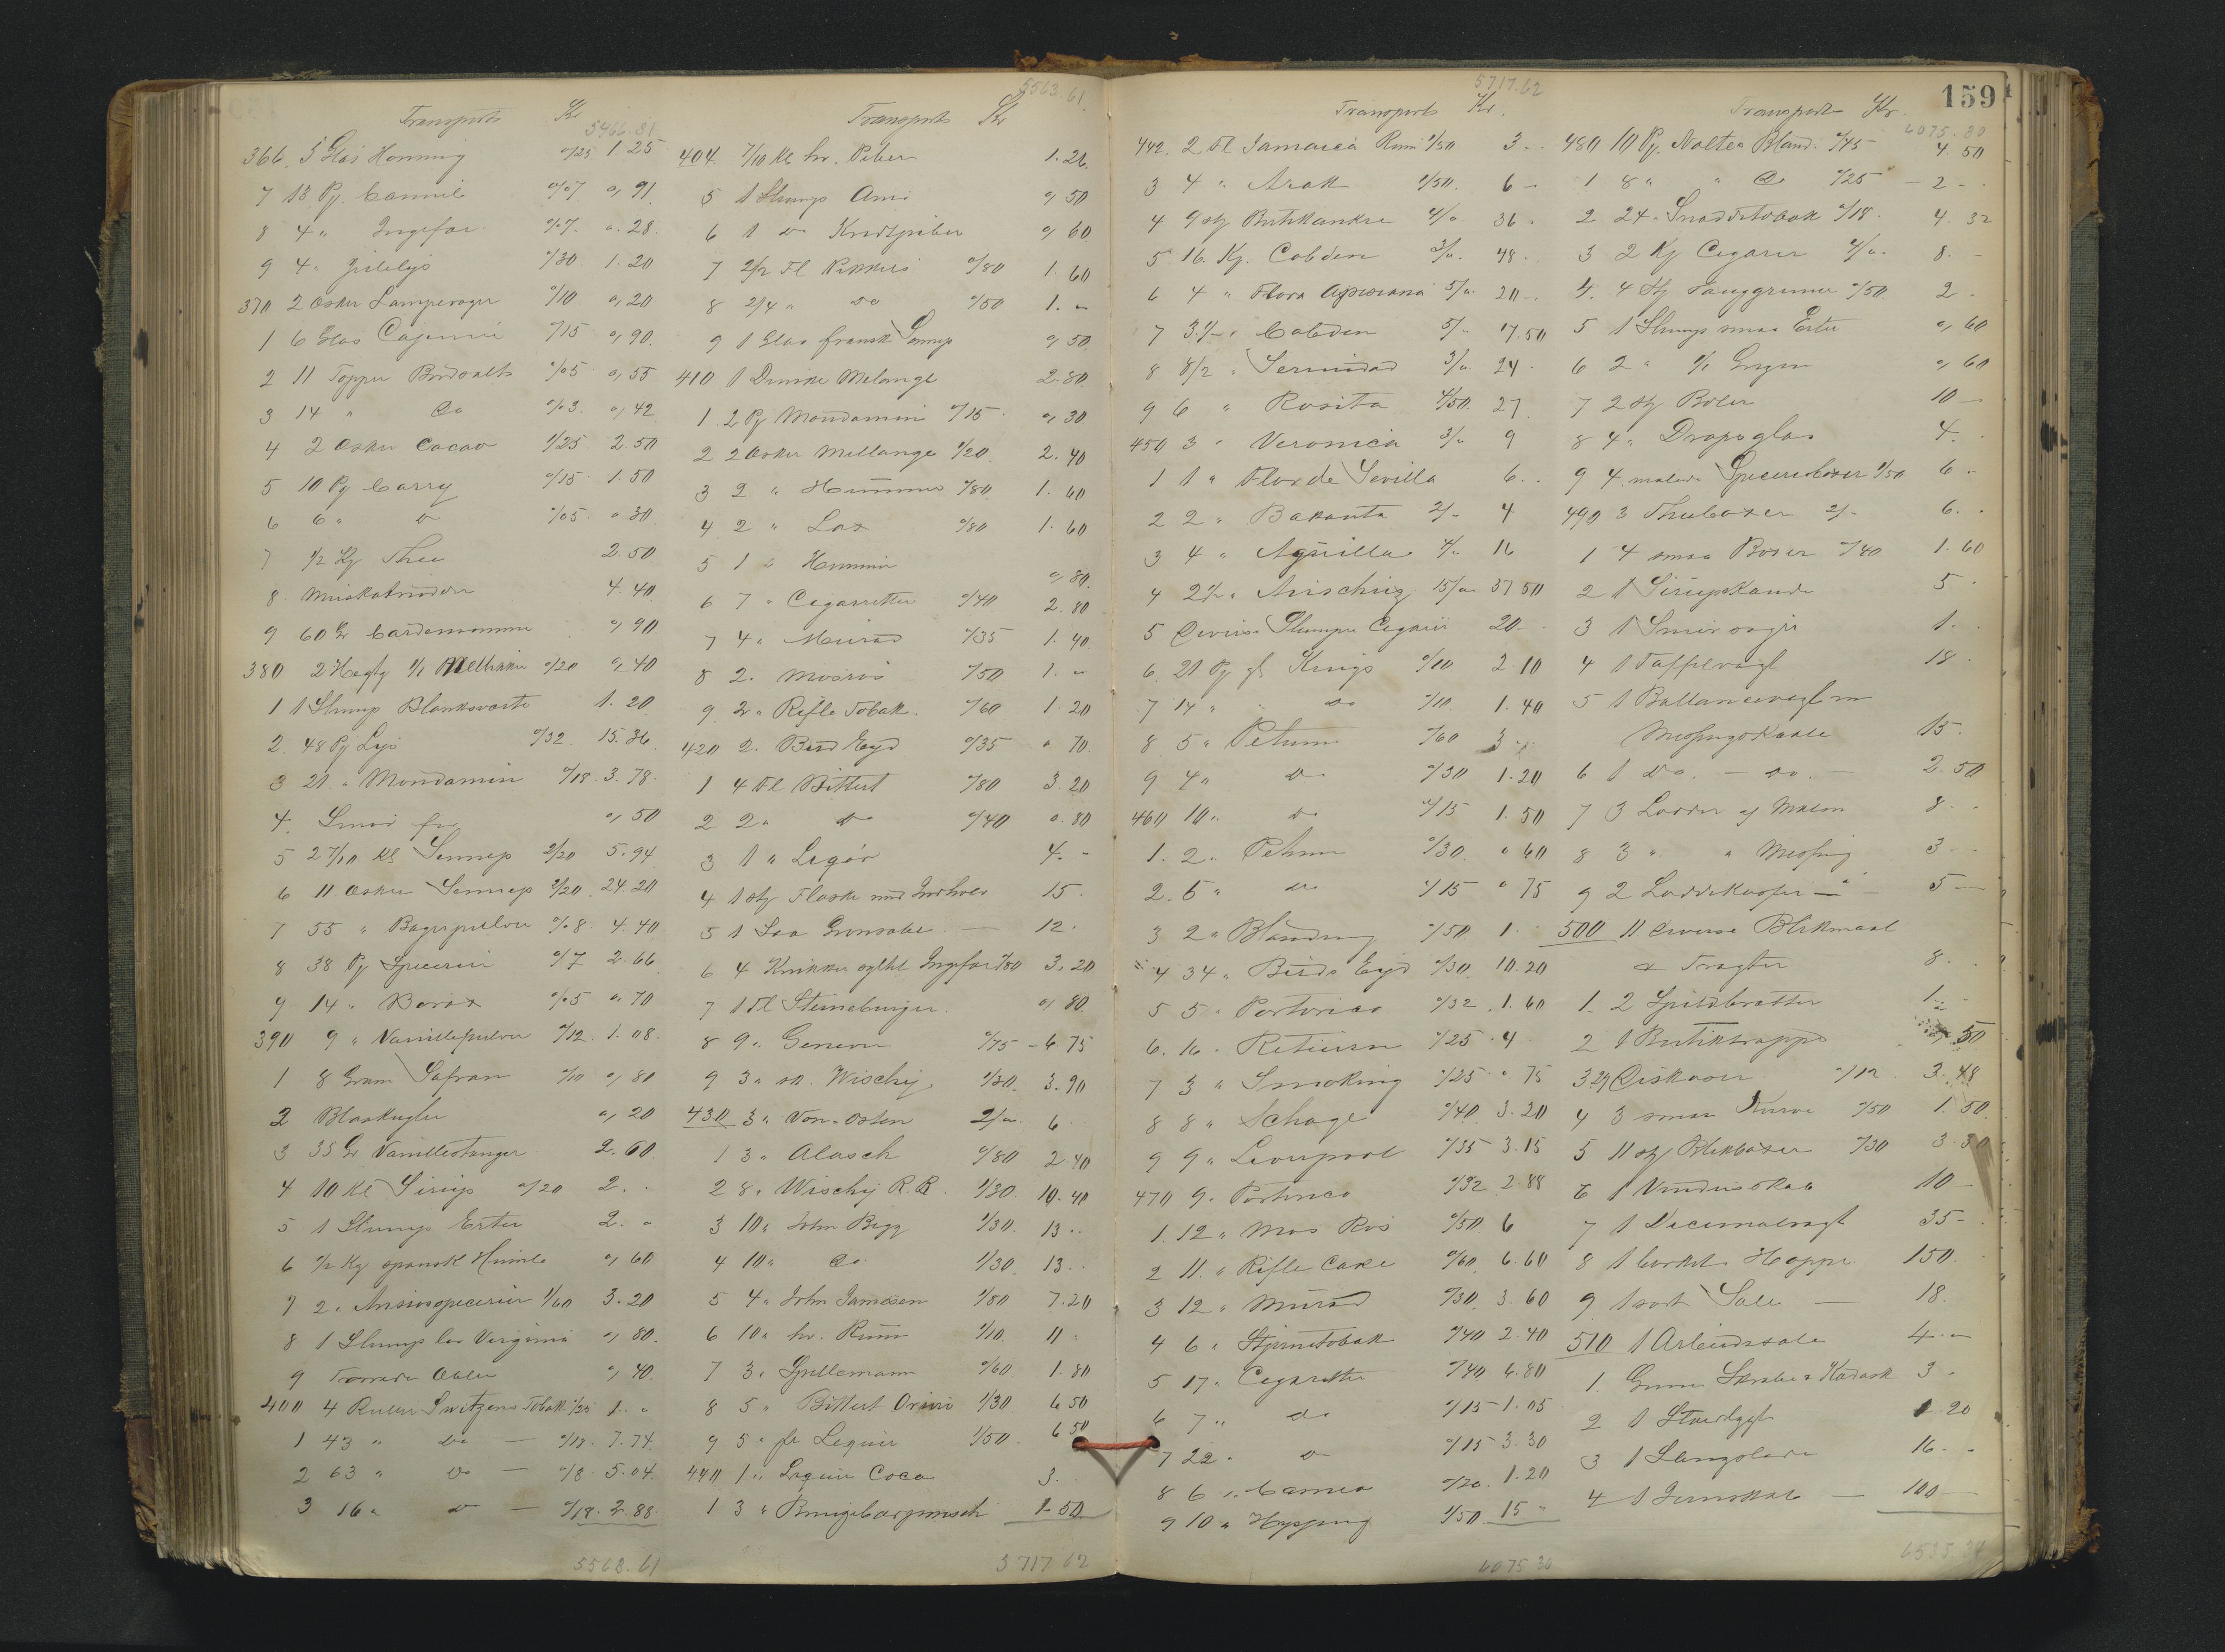 5563.61
Transports Kr
5466.81
366. 5 Glas Honning o/25 1.25
7 13 Pg. Cannel o/07 o, 91
8 4 " Ingefær o/07. o. 28
9 4 " Julelys o/30 1.20
370 2 Æsker Lampevæger o/10 o, 20
1 6 Glas Cajenne o/15 o, 90.
2 11 Topper Bordsalt o/05 o, 55
3 14 " Do o/03. o, 42
4 2 Æsker Cacao 1/25 2.50
5 10 Pg Carry o/15 1.50
6 6 " do o/05 o 30
7 1/2 Kg Thee 2.50
8 Muskatnødder 4.40
9 60 Gr Cardemomme o, 90
380 2 Hægtg 1/1 Nellikker o/20 o, 40
1 1 Slump Blanksværte 1.20
2. 48 Pg Lys o/32 15.36
3 21 " Mondamin o/18. 3.78
4. Smør fro o, 50
5 27/10 Kl Sennep 2/20 5.94
6 11 Æsker Sennep 2/20. 24.20
7 55 " Bagerpulver o/08. 4.40
8 38 Pg Specerier o/7 2.66
9 14 " Borax o/05 o. 70
390 9 " Vanillepulver o/12. 1.08.
1 8 Gram Safran o/10 o, 80
2 Blaakugler o, 20
3 35 Gr Vanillestanger 2.60
4 10 Kl Sirup o/20 2. .
5 1 Slump Erter 2. "
6 1/2 Kg spansk Humle o, 60
7 2 " Ansjosspecerier 1/60 3.20
8 1 Slump løs Virginia o, 80.
9 Tørrede Æbler o, 40.
400 4 Ruller Switzens Tobak 1/25 1. "
1 43 " do — o/18. 7.74.
2 63 " do — o/8. 5.04.
3 16 " do — o/18. 2.88
5563.61
Transports Kr
404. 7/10 Kl hv. Peber 1.26
5 1 Slump Anis o, 50
6 1 do Kridtpiber o, 60
7 2/2 Fl Pikkels o/80 1.60
8 2/4 " do o/50 1. "
9 1 Glas fransk Sennep o, 50
410 1 Dunke Melange 2.80
1 2 Pg Mondamin o/15 o, 30
2 2 Æsker Mellange 1/20 2.40
3 2 " Hummer o/80. 1.60
4 2 " Lax o/80 1.60
5 1 " Hummer o, 80.
6 7 " Cigaretter o/40 2.80
7 4 " Murad o/35 1.40
8 2. Mosrós o/50 1. "
9 2 " Rifle Tobak. o/60 1.20
420 2. Bird Eyd o/35 " 70
1 4 Fl Bittert o/80 3.20
2 2 " do o/40 o. 80
3 1 " Liqør 4. -
4 1 stg Flaske med Indhold 15.
5 1 Laa Grønsabe — 12.
6 4 Krukker syltet Ingefær o/80 3.20
7 1 Fl Steineburger o, 80
8 9 " Genever o/75 - 6 75
9 3 " sk. Wischy 1/30. 3.90
430 3 " Von-Osten 2/" 6
1 3 " Alasch o/80 2.40
2 8 " Wischy R.B. 1/30. 10.40
3 10 " John Begg 1/30. 13 . .
4 10 " Do 1/30. 13 . .
5 4 " John Jamesen 1/80 7.20
6 10 " hv. Rum 1/10. 11 "
7 3. Spellemann o/60 1.80
8 5 " Bittert 1/30 6 50
9 5 " fr Liquer 1/50 6 50
440 1 " Liquer Coca 3.
1 3 " 1.50
5717.62
5717.62
Transports Kr.
442. 2 Fl Jamaica Rum 1/50 3. .
3 4 " Arak 1/50. 6 -
4 9 stg Butikkankre 4/" 36 .
5 16 Kg. Cobden 3/". 48 .
6 4 " Flora 5/" 20 -
7 3 1/2 " Cobden 5/" 17.50
8 8/2 " Serinidad 3/" 24
9 6 " Rosita 4/50. 27
450 3 " Veronica 3/" 9
1 1 " Flor de Sevilla 6. .
2 2 " Bakanta 2/- 4
3 4 " Aguilla 4/" 16
4 2 1/2 " 15/" 37 50
5 Diverse Slumper Cigarer 20 -
6. 21 Pg gl Krigs o/10 2.10
7 14 " " do o/10 1.40
8 5 " Petum o/60 3 "
9 4 " do o/30 1.20
460 10 " do o/15 1.50
1. 2 " Petum o/30 " 60
2. 5 " do o/15 " 75
3 2 " Blanding o/50 1.
4 34 " Birds Eyd o/30 10.20
5 5 " Portorico o/32 . 1.60
6. 16 " Reticum o/25 . 4
7 3 " Smoking o/25 " 75
8 8 " Schage o/40 3.20
9 9 " Liverpool o/35 3.15
470 9. Portorico o/32 2.88
1. 12 " Mos Ros o/50 6
2 11. " Rifle Cake o/60 6.60
3 12 " Murad o/30 3.60
4 6 " Stjernetobak o/40 2.40
5 17 " Cigaretter o/40 6.80
6 7 " do o/15 1.05
7 22 " do o/15 3.30
8 6 " Cameo o/20 . 1.20
9 10 " 1/50 15 "
6075 30
159
Transports Kr
6075.30
480 10 Pg. Noltes Bland. o/45 4.50
1 8 " " Do o/25 - 2 -
2 24 " Snaddetobak o/18. 4. 32
3 2 Kg Cigarer 4/" 8. -
4. 4 stg Tauggrime o/50 2 .
5 1 Slump smaa Erter o, 60
6 2 " 1/1 Gryn o, 60
7 2 stg Boler 10 -
8 4 " Dropsglas 4.
9 4 malede Specerieboxer 1/50 6 -
490 3 Theeboxer 2/- 6. .
1 4 smaa Boxer o/40 1.60
2 1 Sirupskande 5 .
3 1 Smørvægt 1. .
4 1 Taffelvægt 18 .
5 1 Ballancevægt m
Messingskaale 15.
6 1 do. — do. — 2.50
7 3 Lodder af Malm 8 . .
8 3 " " Messing 3 - -
9 2 Loddekasser — " — 5 —
500 11 Diverse Blikmaal
& Tragter 8. .
1. 2 Spildbrætter 1. .
2 1 Butiktrappe 50
3 29 Diskaser o/12 3.48
4 3 smaa Kurve o/50 1.50.
5 11 stg Blikboxer o/30 3.30
6 1 Vinduskab 10 -
7 1 Decimalvægt 35 -
8 1 Hoppe 150.
9 1 sort Sæle — 18.
510 1 Arbeidssæle 4. -
1. 3 .
2 1 1.20
3 1 Langslæde 16 - .
4 1 Jernskab — 100 -